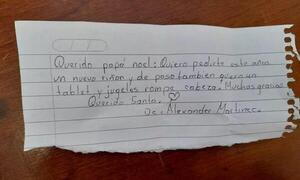 Querido papá noel: Quiero pedirte este año
un nuevo riñon y de paso tambien quiero un
tablet y jugetes rompe cabeza. Muchas gracias
Querido Santa. ♡
De: Alexander Martinez.